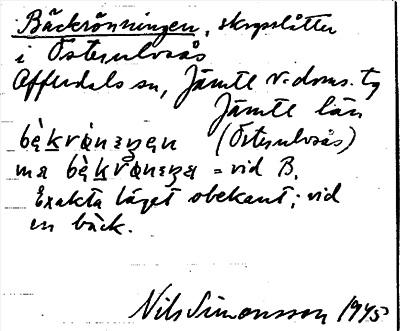 Bäckrönningen, skogsslåtter
i Österulvsås
Offerdals sn, Jämtl v. doms. tg
Jämtl län
(Österulvsås)
= vid B.
Exakta läget obekant; vid
en bäck.
Nils Simonsson 1945